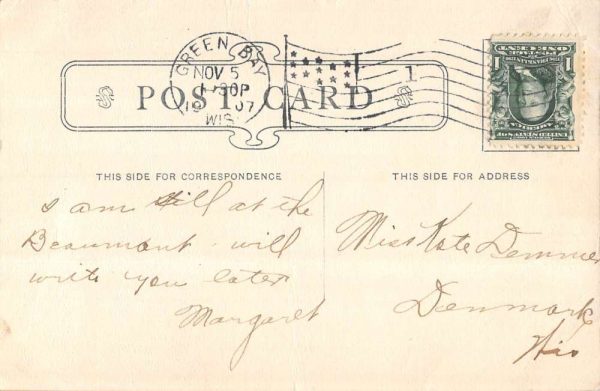 GREEN BAY
NOV 5
1907
WIS.
1
POST CARD
THIS SIDE FOR CORRESPONDENCE
THIS SIDE FOR ADDRESS
I am still at the
Beaumont - will
write you later
Margaret
Miss Kate Demmer
Denmark
Wis
ONE CENT
1 1